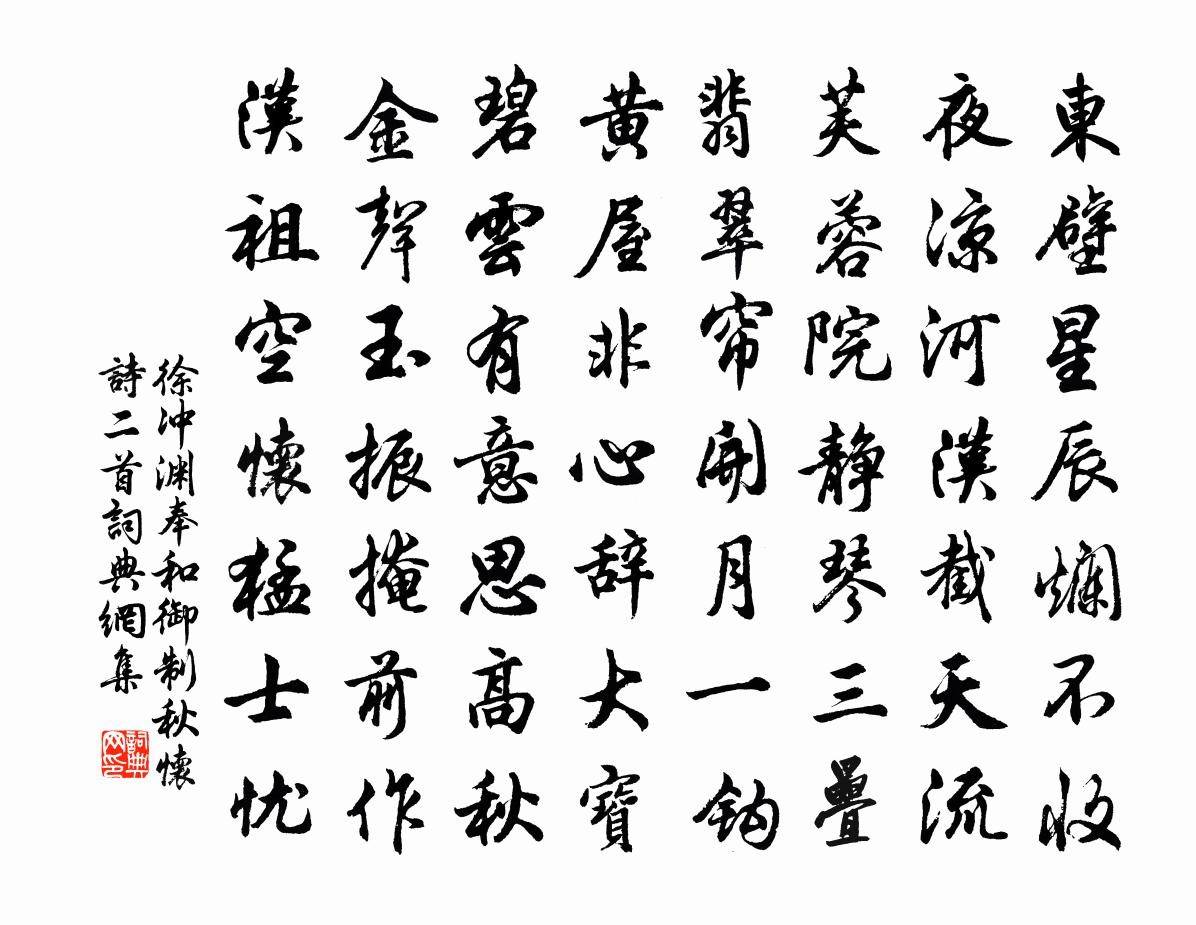 東壁星辰爛不收
夜涼河漢截天流
芙蓉院靜琴三疊
翡翠帘開月一鈎
黃屋非心辭大寶
碧雲有意思高秋
金聲玉振掩前作
漢祖空懷猛士忧
徐沖淵奉和御制秋懷
詩二首詞典網集
詞典网印